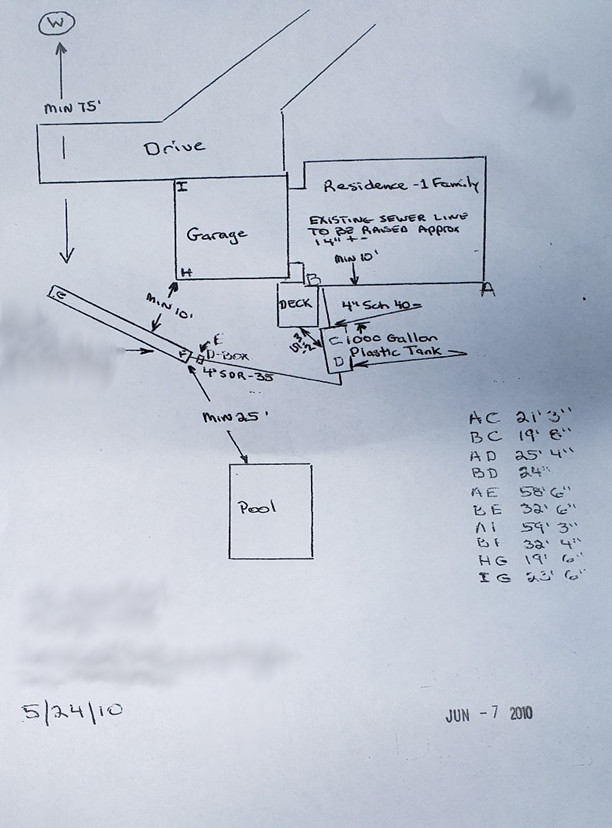 W
MIN 75'
Drive
I
Residence -1 Family
EXISTING SEWER LINE
TO BE RAISED Approx
14" +-
Garage
MIN 10'
H
B
A
DECK
4" Sch 40
G
MIN 10'
C 1000 Gallon
D Plastic Tank
E
D-BOX
F
4" SDR-35
MIN 25'
Pool
AC 21' 3"
BC 19' 8"
AD 25' 4"
BD 24"
AE 58' 6"
BE 32' 6"
59' 3"
BF 32' 4"
HG 19' 6"
IG 6"
5/24/10
JUN -7 2010